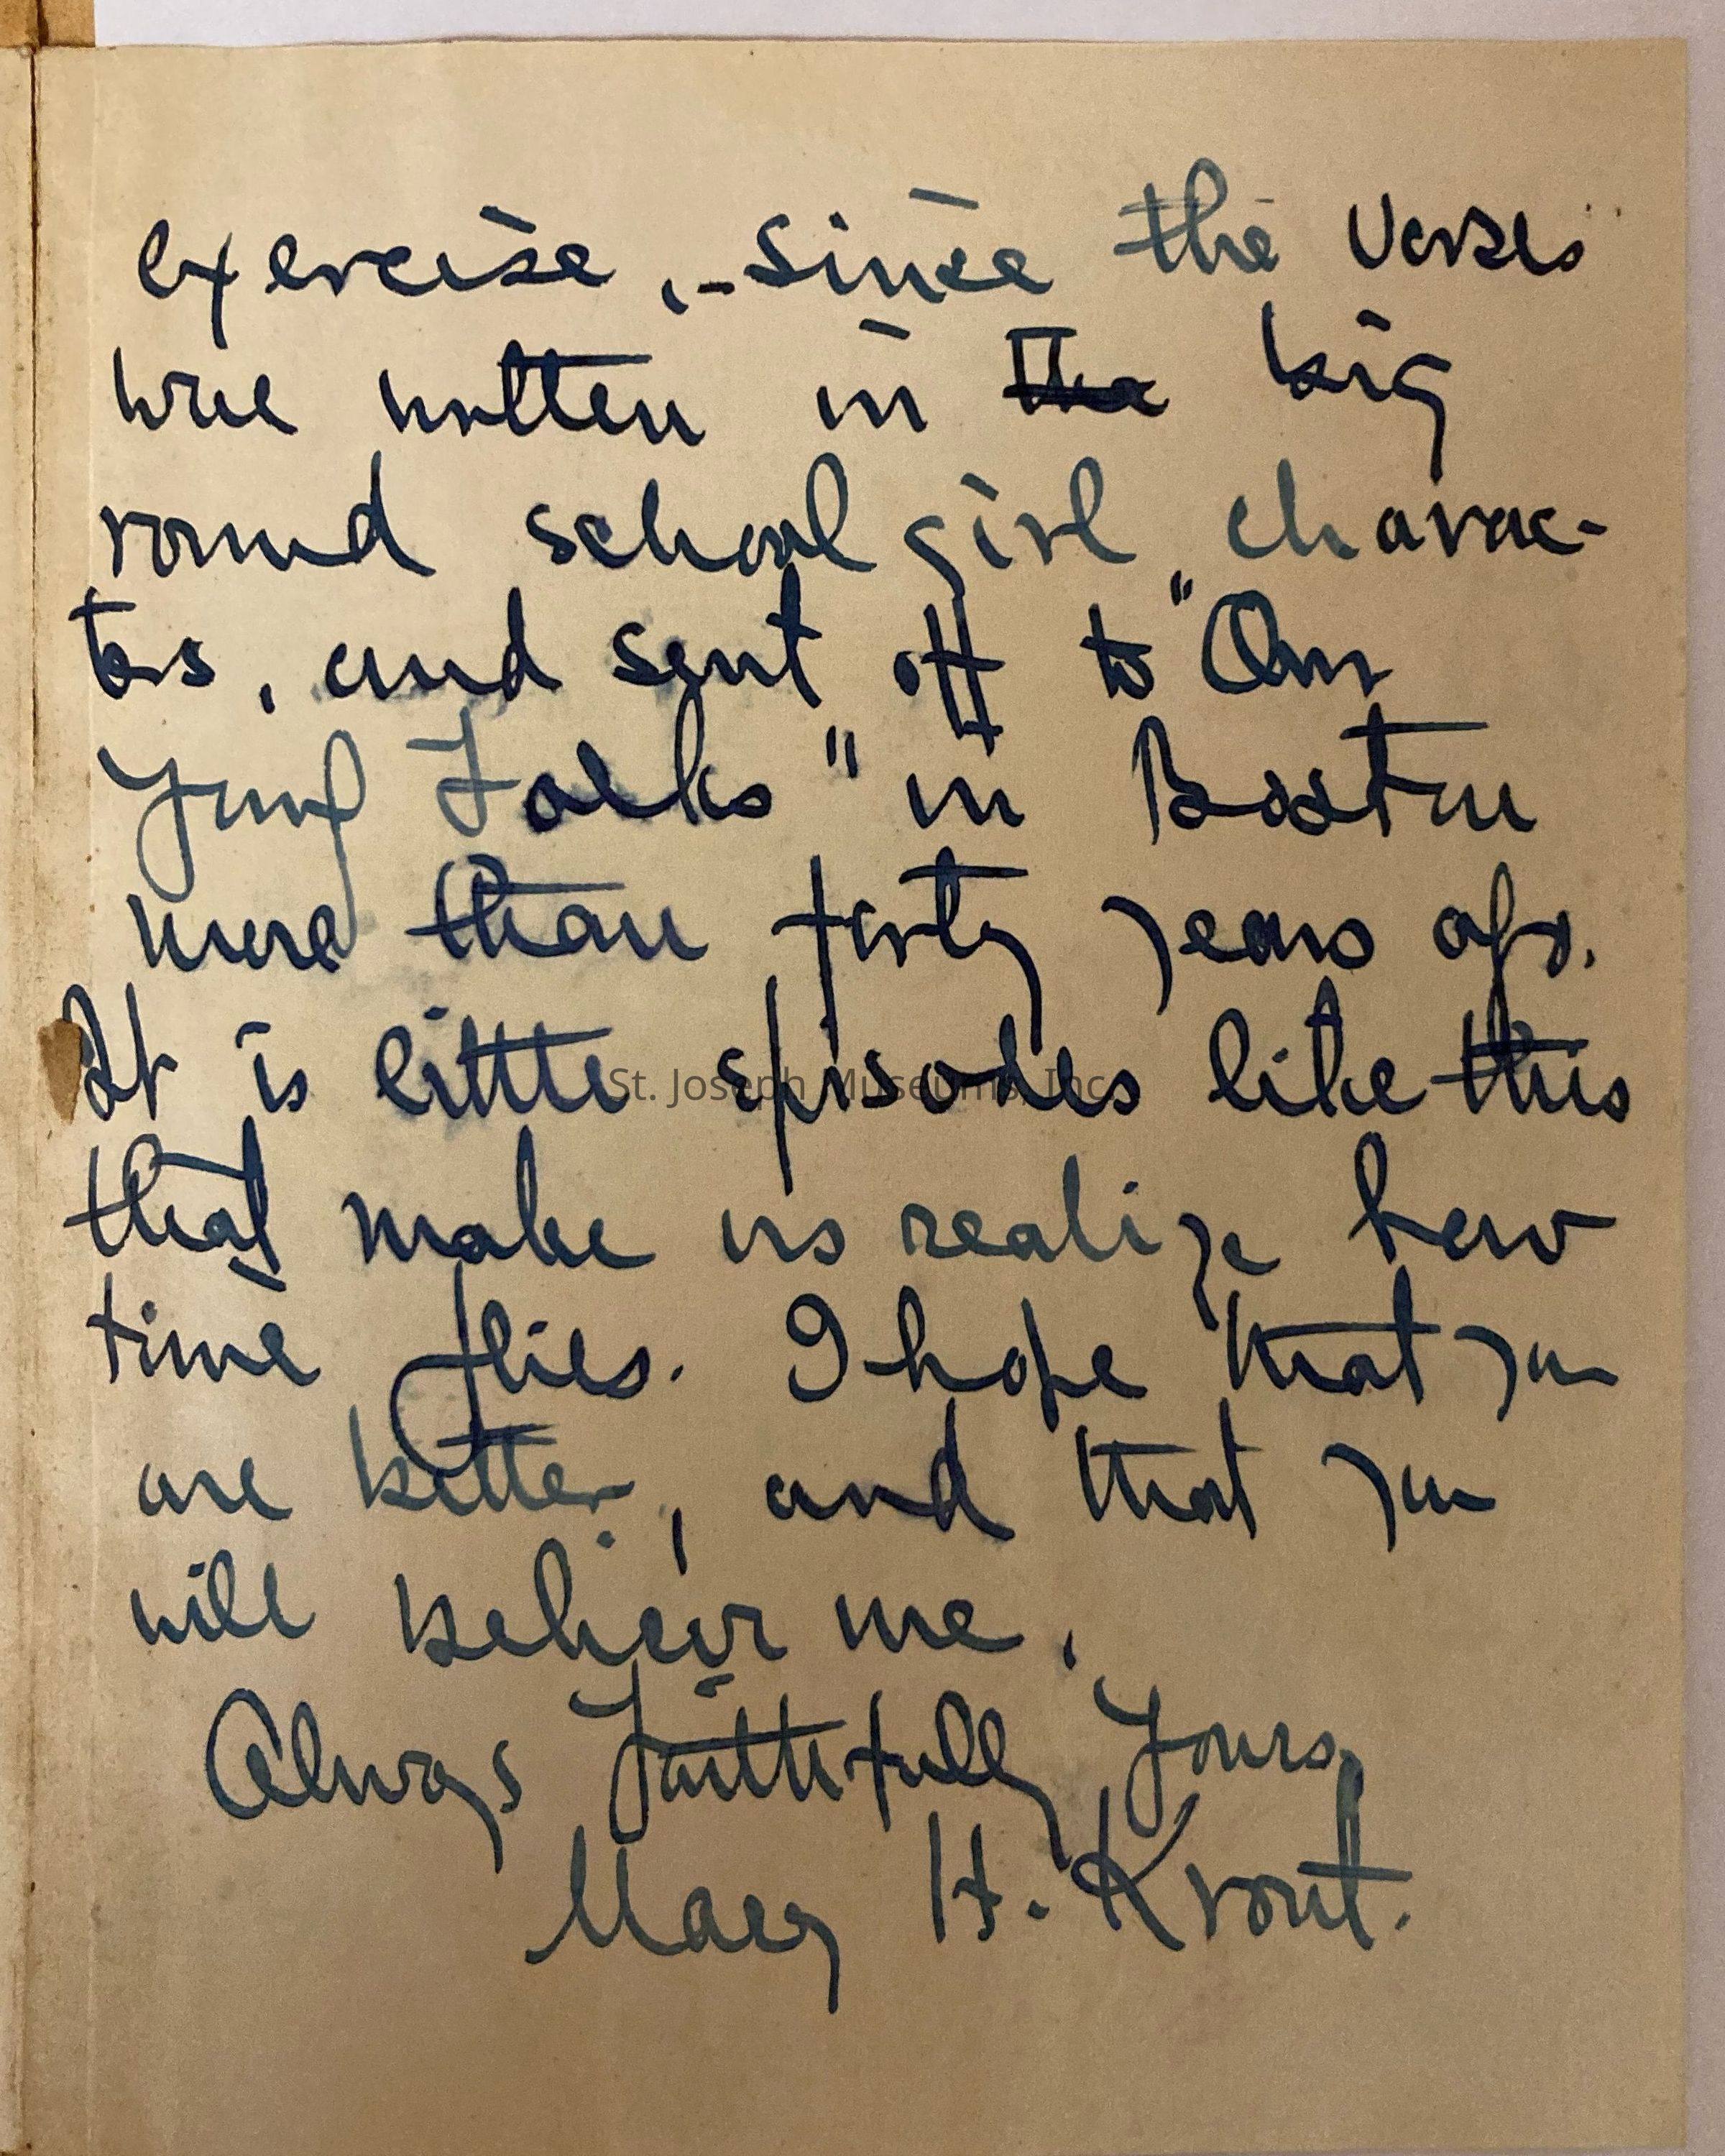 exercise, - since the verses
were written in the big
round school girl charac-
ters, and sent off to "Our
Young Folks" in Boston
more than forty years ago.
It is little episodes like this
St. Joseph Museums, Inc.
that make us realize how
time flies. I hope that you
are better, and that you
will believe me,
Always Faithfully Yours,
Mary H. Krout.